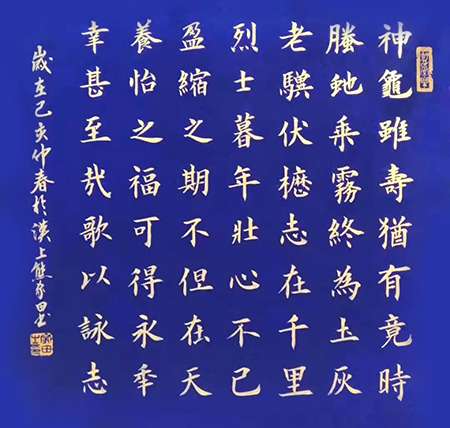 神龜雖壽猶有竟時
騰虵乘霧終為土灰
老驥伏櫪志在千里
烈士暮年壯心不已
盈縮之期不但在天
養怡之福可得永年
幸甚至哉歌以詠志
歲在己亥仲春於漢上